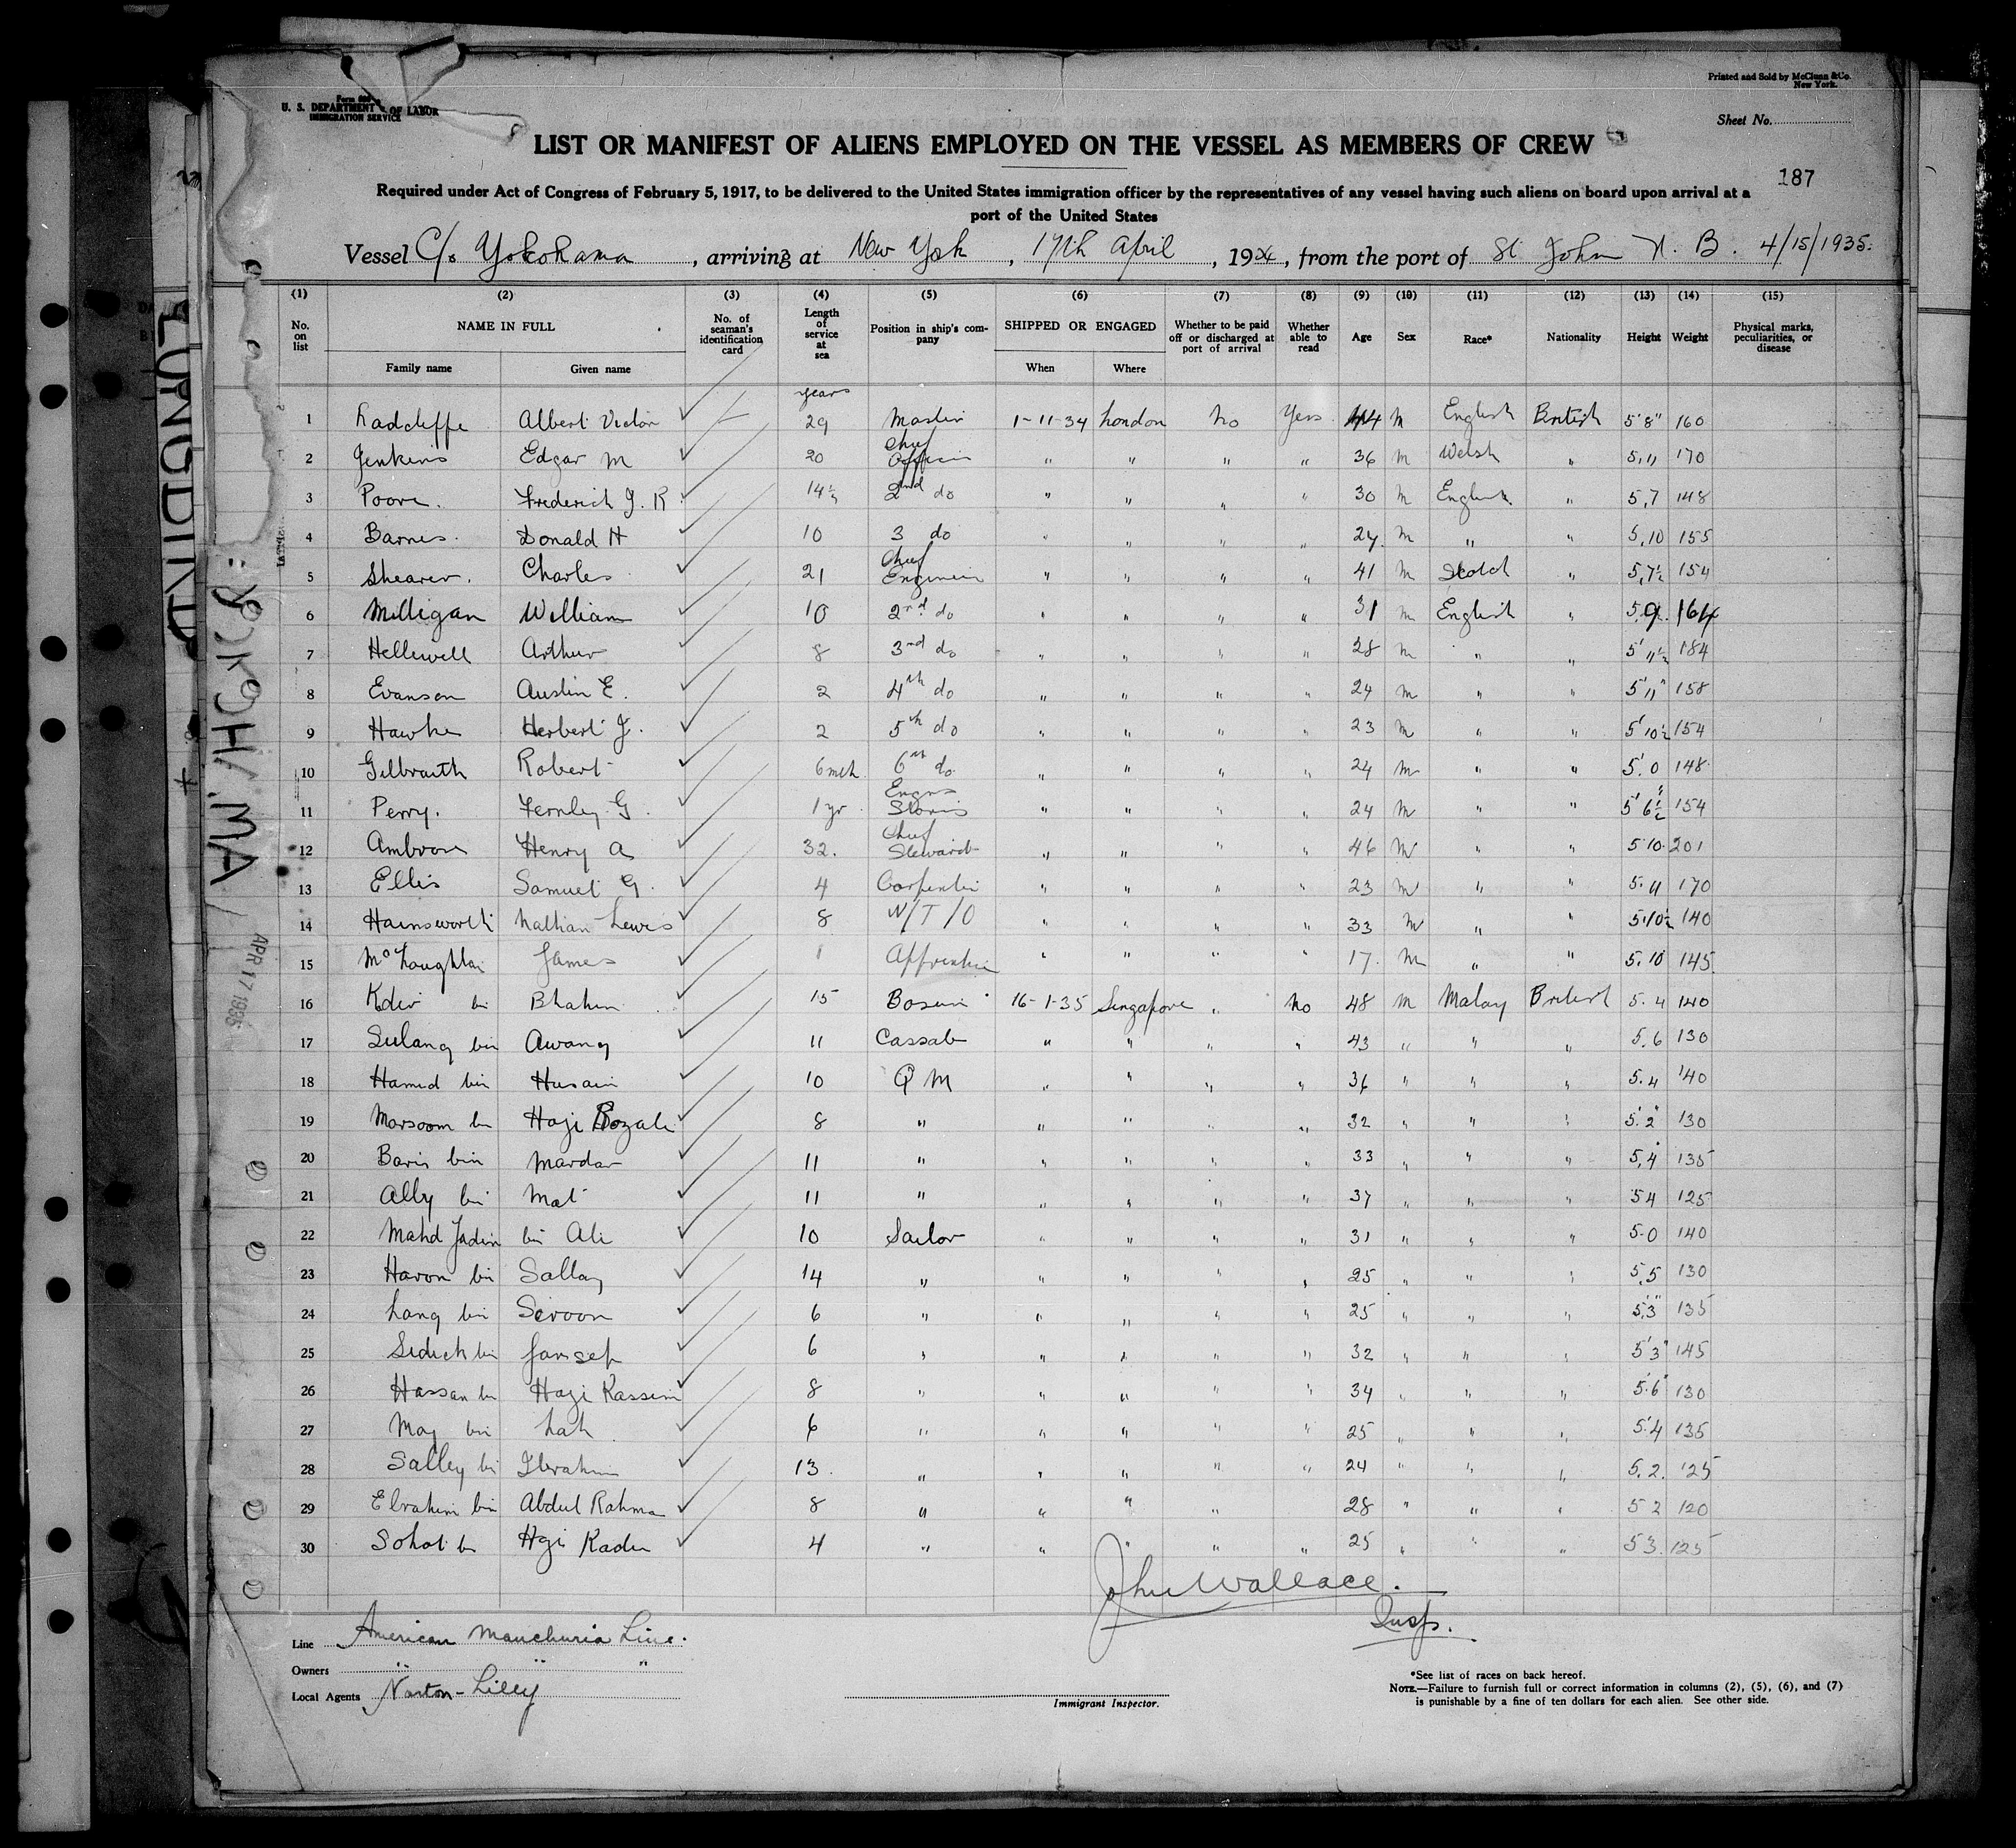 Printed and Sold by McClunn & Co.
New York.
Form 680
U. S. DEPARTMENT OF LABOR
IMMIGRATION SERVICE
Sheet No.
LIST OR MANIFEST OF ALIENS EMPLOYED ON THE VESSEL AS MEMBERS OF CREW
187
Required under Act of Congress of February 5, 1917, to be delivered to the United States immigration officer by the representatives of any vessel having such aliens on board upon arrival at a
port of the United States
Vessel C/o Yokohama, arriving at New York, 17th April, 19, from the port of St John N. B. 4/15/1935.
(1) (2) (3) (4) (5) (6) (7) (8) (9) (10) (11) (12) (13) (14) (15)
No. on list NAME IN FULL No. of seaman's identification card Length of service at sea Position in ship's company SHIPPED OR ENGAGED Whether to be paid off or discharged at port of arrival Whether able to read Age Sex Race* Nationality Height Weight Physical marks, peculiarities, or disease
Family name Given name When Where
years
1 Radcliffe Albert Victor — 29 Master 1-11-34 London No Yes 44 M English British 5'8" 160
2 Jenkins Edgar M 20 Chief Officer " " " " 36 M Welsh " 5,11 170
3 Poore. Frederick J. R 14½ 2nd do " " " " 30 M English " 5,7 148
4 Barnes. Donald H 10 3 do " " " " 24 M " " 5,10 155
5 Shearer. Charles 21 Chief Engineer " " " " 41 M Scotch " 5,7½ 154
6 Milligan William 10 2nd do " " " " 31 M English " 5.9 164
7 Hellewell Arthur 8 3rd do " " " " 28 M " " 5'11½ 184
8 Evanson Austin E. 2 4th do " " " " 24 M " " 5'11" 158
9 Hawke Herbert J. 2 5th do " " " " 23 M " " 5'10½ 154
10 Gilbraith Robert 6 mth 6th do " " " " 24 M " " 5'.0 148
11 Perry. Fernley G. 1 yr Engrs Stores " " " " 24 M " " 5'6½" 154
12 Ambrose Henry A 32. Chief Steward " " " " 46 M " " 5 10 201
13 Ellis Samuel G. 4 Carpenter " " " " 23 M " " 5.11 170
14 Hainsworth Nathan Lewis 8 W/T/O " " " " 33 M " " 5,10½ 140
15 McLoughlin James 1 Apprentice " " " " 17. M " " 5.10 145
16 Kder bin Blahim 15 Bosun 16-1-35 Singapore " No 48 M Malay British 5.4 140
17 Sulang bin Awang 11 Cassab " " " " 43 " " " 5.6 130
18 Hamid bin Husain 10 Q M " " " " 36 " " " 5.4 140
19 Marsoom bin Haji Bozali 8 " " " " " 32 " " " 5'.2" 130
20 Baris bin Mardar 11 " " " " " 33 " " " 5,4 135
21 Ally bin Mat 11 " " " " " 37 " " " 5 4 125
22 Mahd Jadin bin Ali 10 Sailor " " " " 31 " " " 5.0 140
23 Haron bin Sallay 14 " " " " " 25 " " " 5,5 130
24 Lang bin Seroon 6 " " " " " 25 " " " 5'3" 135
25 Sidick bin Jansep 6 " " " " " 32 " " " 5'3" 145
26 Hassan bin Hagi Kassim 8 " " " " " 34 " " " 5'.6" 130
27 May bin Lah 6 " " " " " 25 " " " 5'.4 135
28 Salley bin Ibrahim 13. " " " " " 24 " " " 5.2. 125
29 Ebrahim bin Abdul Rahma 8 " " " " 28 " " " 5 2 120
30 Sohot bin Hgi Kader 4 " " " " " 25 " " " 5 3. 125
John Wallace.
Insp.
Line American Manchuria Line.
Owners " " "
Local Agents Norton-Lilly
Immigrant Inspector.
*See list of races on back hereof.
NOTE.—Failure to furnish full or correct information in columns (2), (5), (6), and (7)
is punishable by a fine of ten dollars for each alien. See other side.
APR 17 1935